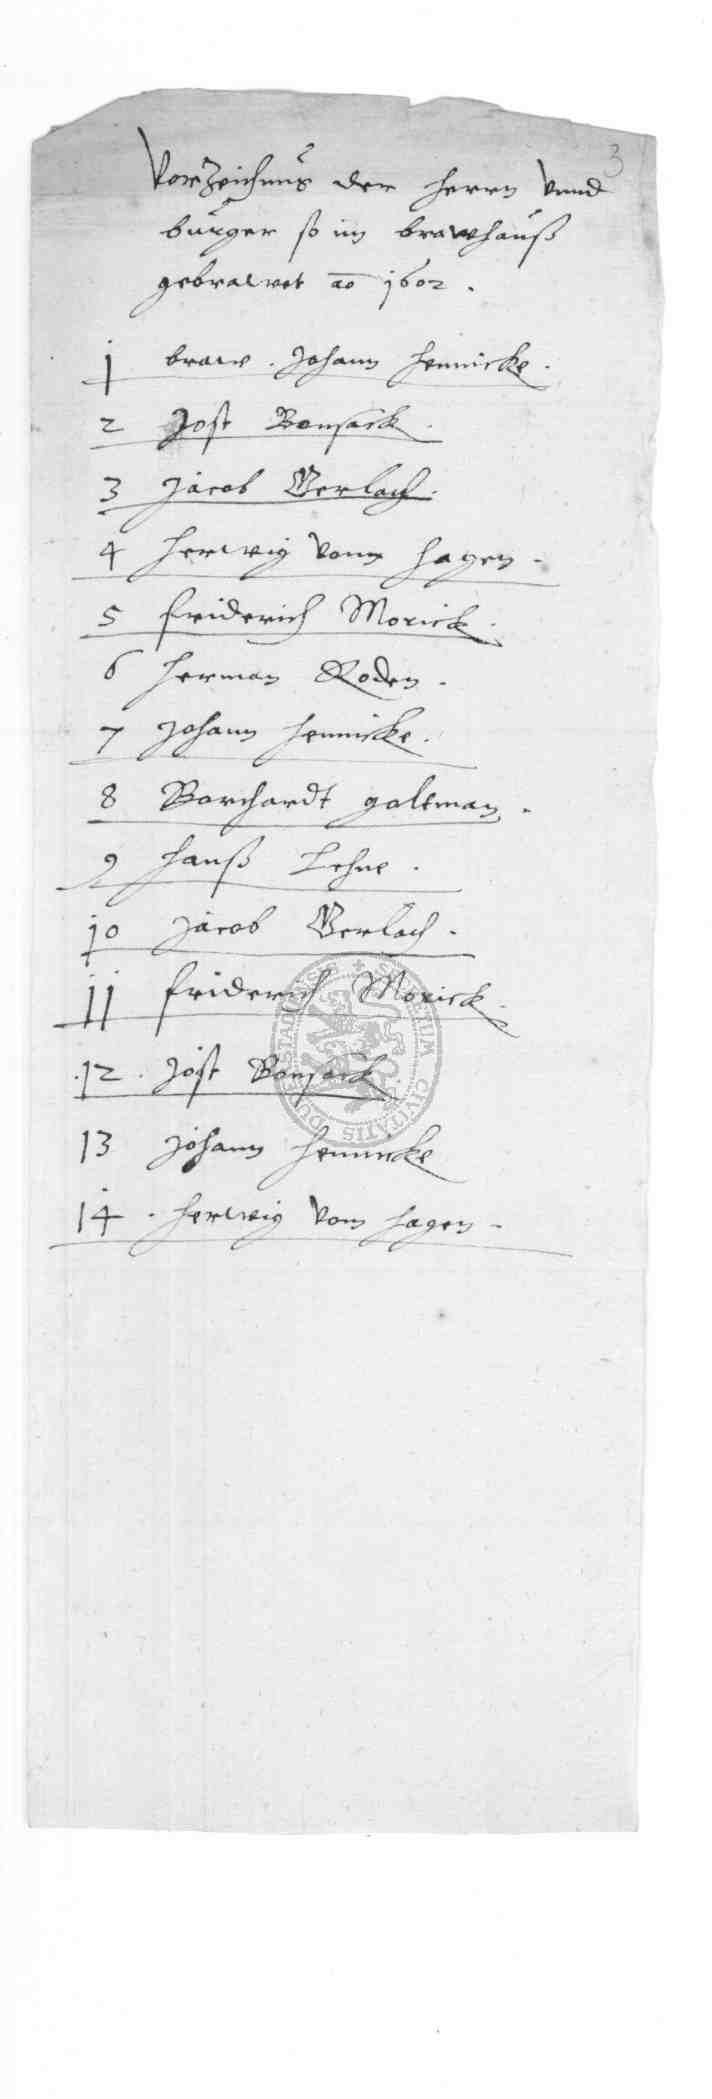 3
Vorzeichnus der Herrn vnnd
bürger so im brawhauß
gebrawet ao 1602.
1 braw. Johann Hennicke.
2 Jost Bonsack.
3 Jacob Gerlach.
4 Herwig vonn Hagen.
5 Friderich Morick.
6 Herman Roden.
7 Johann Hennicke.
8 Borchardt Goltman.
9 Hanß Lehne.
10 Jacob Gerlach.
11 Friderich Morick.
12. Jost Bonsack
13 Johann Hennicke
14. Herwig vom Hagen.
SECRETUM CIVITATIS DUDERSTADIENSIS